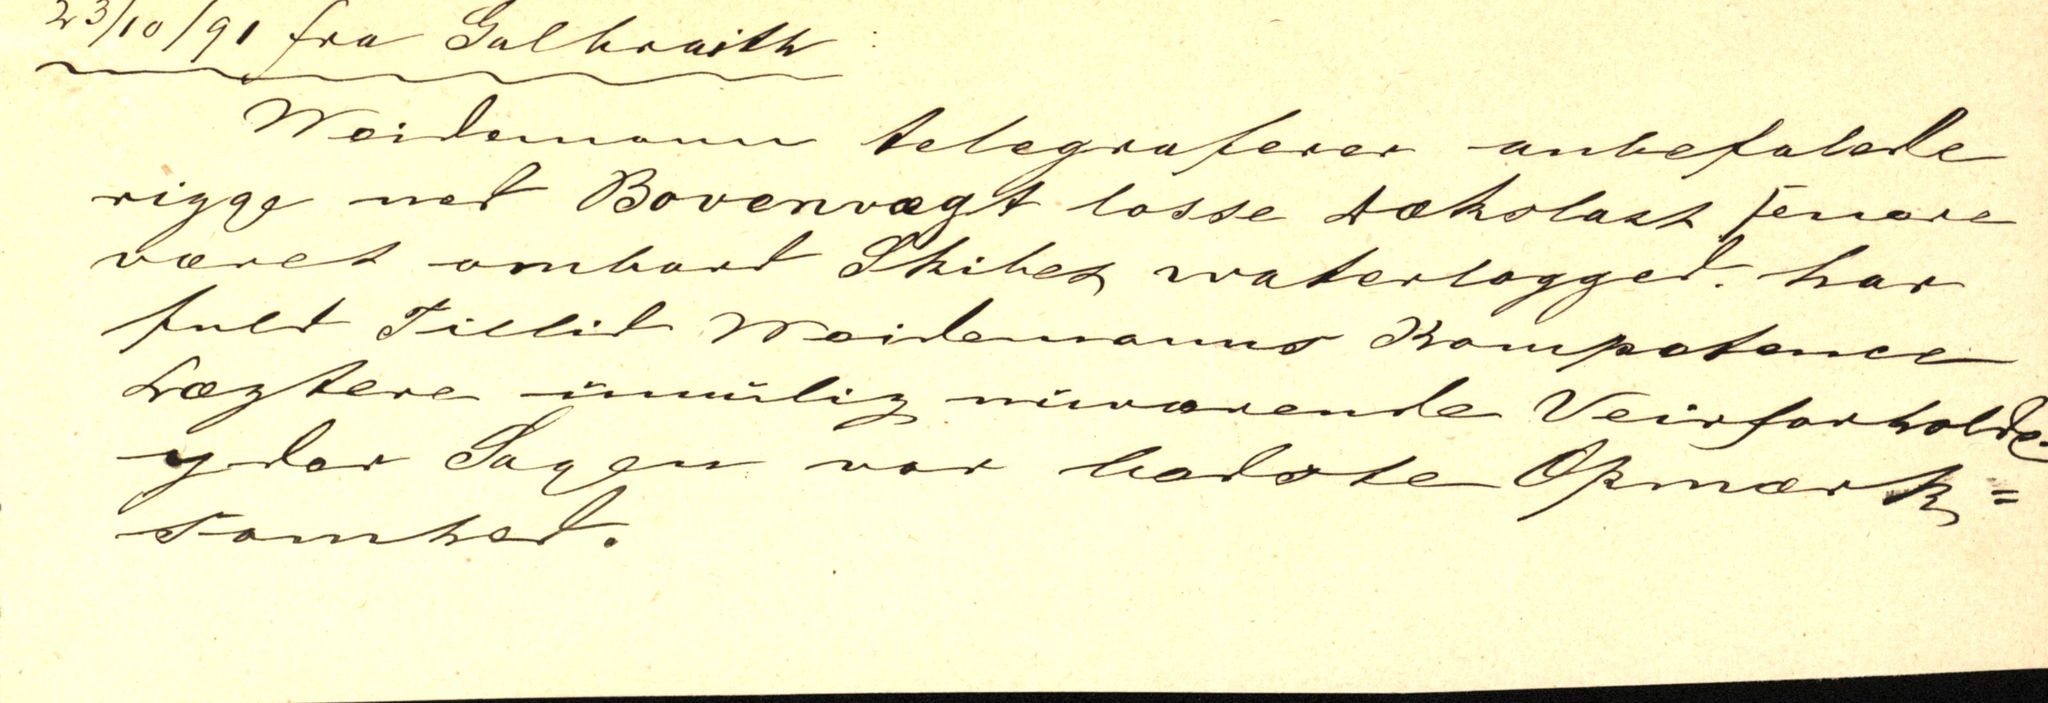 23/10/91 fra Galbraith
Weidemann telegraferer anbefalede
rigge ned Bovenvægt losse Dækslast senere
været ombord Skibet waterlogged. har
fuld Tillid Weidemanns Kompetence
Lægtere umulig nuværende Veirforholde.
yder Sagen vor bedste Opmærk=
somhed.